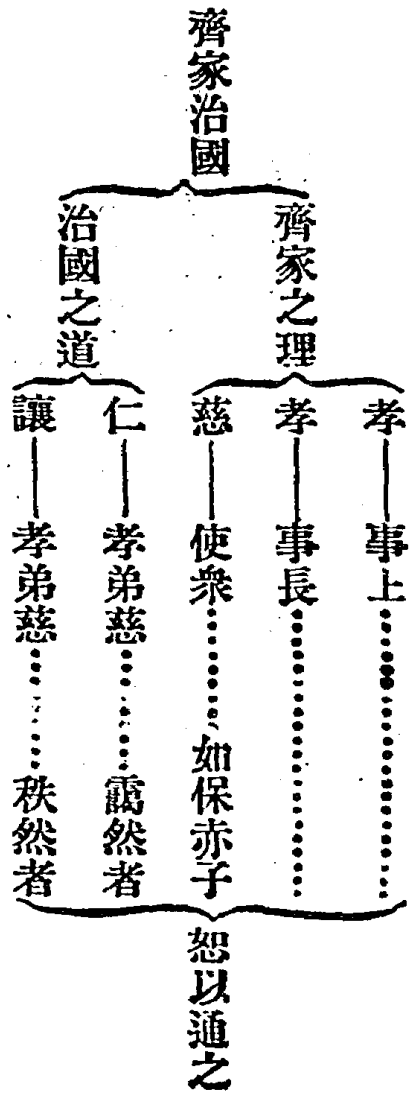 齊家治國
齊家之理
孝——事上………………
孝——事長………………
慈——使衆………如保赤子
治國之道
仁——孝弟慈………靄然者
讓——孝弟慈………秩然者
恕以通之